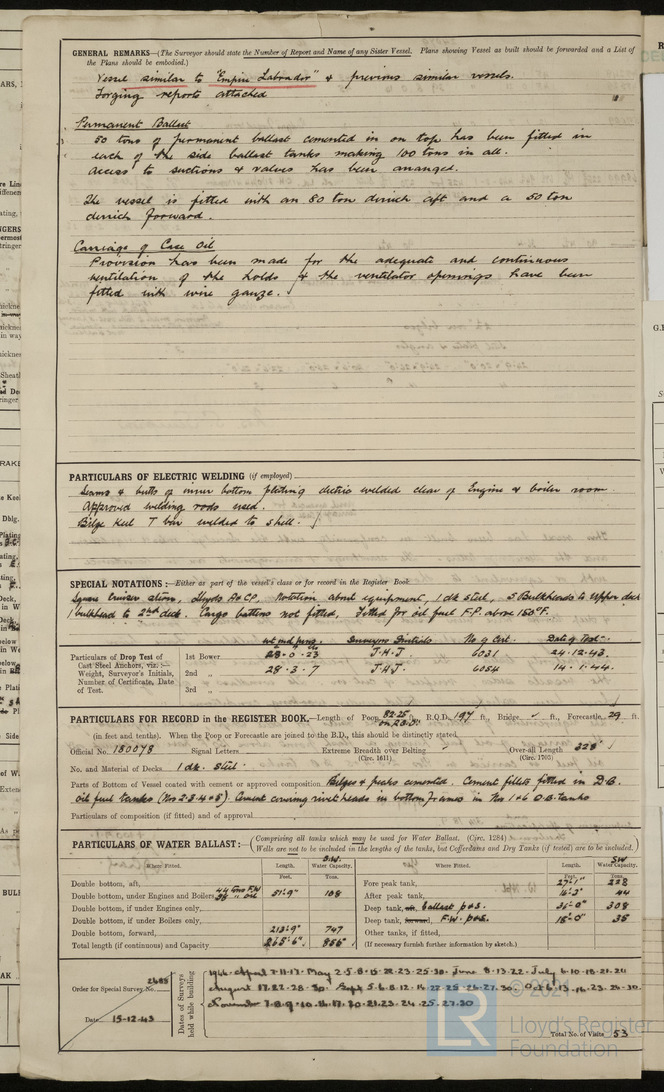 GENERAL REMARKS—(The Surveyor should state the Number of Report and Name of any Sister Vessel. Plans showing Vessel as built should be forwarded and a List of
the Plans should be embodied.)
Vessel similar to "Empire Labrador" & previous similar vessels.
Forging reports attached
Permanent Ballast
50 tons of permanent ballast cemented in on top has been fitted in
each of the side ballast tanks making 100 tons in all.
access to suctions & valves has been arranged.
The vessel is fitted with an 80 ton derrick aft and a 50 ton
derrick forward.
Carriage of Case Oil
Provision has been made for the adequate and continuous
ventilation of the holds & the ventilator openings have been
fitted with wire gauze.
PARTICULARS OF ELECTRIC WELDING (if employed)
Seams & butts of inner bottom plating electric welded clear of Engine & boiler room.
Approved welding rods used.
Bilge Keel T bar welded to shell.
SPECIAL NOTATIONS:— Either as part of the vessel's class or for record in the Register Book
Square cruiser stern, Lloyds A & CP. Notation about equipment, 1 dk steel, 5 Bulkheads to upper deck
1 bulkhead to 2nd deck. Cargo battens not fitted, Fitted for oil fuel F.P. above 150°F.
wt and pung. Surveyors Initials No of Cert. Date of Test
Particulars of Drop Test of Cast Steel Anchors, viz.:— Weight, Surveyor's Initials, Number of Certificate, Date of Test.
1st Bower 28-0-23 J.H.J. 6031 24-12-43.
2nd " 28-3-7 J.H.J. 6054 14-1-44.
3rd "
PARTICULARS FOR RECORD in the REGISTER BOOK.—Length of Poop 82.25 ft., R.Q.D. 197 ft., Bridge ft., Forecastle 29 ft.
(in feet and tenths). When the Poop or Forecastle are joined to the B.D., this should be distinctly stated
Official No. 180078 Signal Letters Extreme Breadth over Belting (Circ. 1611) Over-all Length 328' (Circ. 1703)
No. and Material of Decks 1 dk. Steel.
Parts of Bottom of Vessel coated with cement or approved composition Bilges & peaks cemented. Cement fillets fitted in D.B.
oil fuel tanks (Nos 2.3.4 & 5) Cement covering rivet heads in bottom frames in Nos 1 & 6 D.B. tanks
Particulars of composition (if fitted) and of approval
PARTICULARS OF WATER BALLAST:— (Comprising all tanks which may be used for Water Ballast. (Circ. 1284)
Wells are not to be included in the lengths of the tanks, but Cofferdams and Dry Tanks (if tested) are to be included.)
Where Fitted. Length. Feet. Water Capacity. Tons. Where Fitted. Length. Feet. Water Capacity. Tons.
Double bottom, aft, Fore peak tank, 27'-1" 228
Double bottom, under Engines and Boilers 51'-9" 108 After peak tank, 16'-3" 44
Double bottom, if under Engines only, Deep tank, aft, ballast p&s. 308
Double bottom, if under Boilers only, Deep tank, forward, F.W. p&s. 18'-0" 35
Double bottom, forward, 213'-9" 747 Other tanks, if fitted,
Total length (if continuous) and Capacity 265'-6" 855 (If necessary furnish further information by sketch.)
Order for Special Survey No. 2685
Date 15-12-43
Dates of Surveys held while building
1944 April 7.11.17. May 2.5.8.15.22.23.25.30. June 8.13.22. July 6.10.18.21.24
August 17.22.28.30. Sept 5.6.8.12.14.22.25.26.27.30. Oct 6.13.16.23.24.30.
November 7.8.9.10.16.17.20.21.23.24.25.27.30
Total No. of Visits 53
© 2021
LR
Lloyd's Register
Foundation